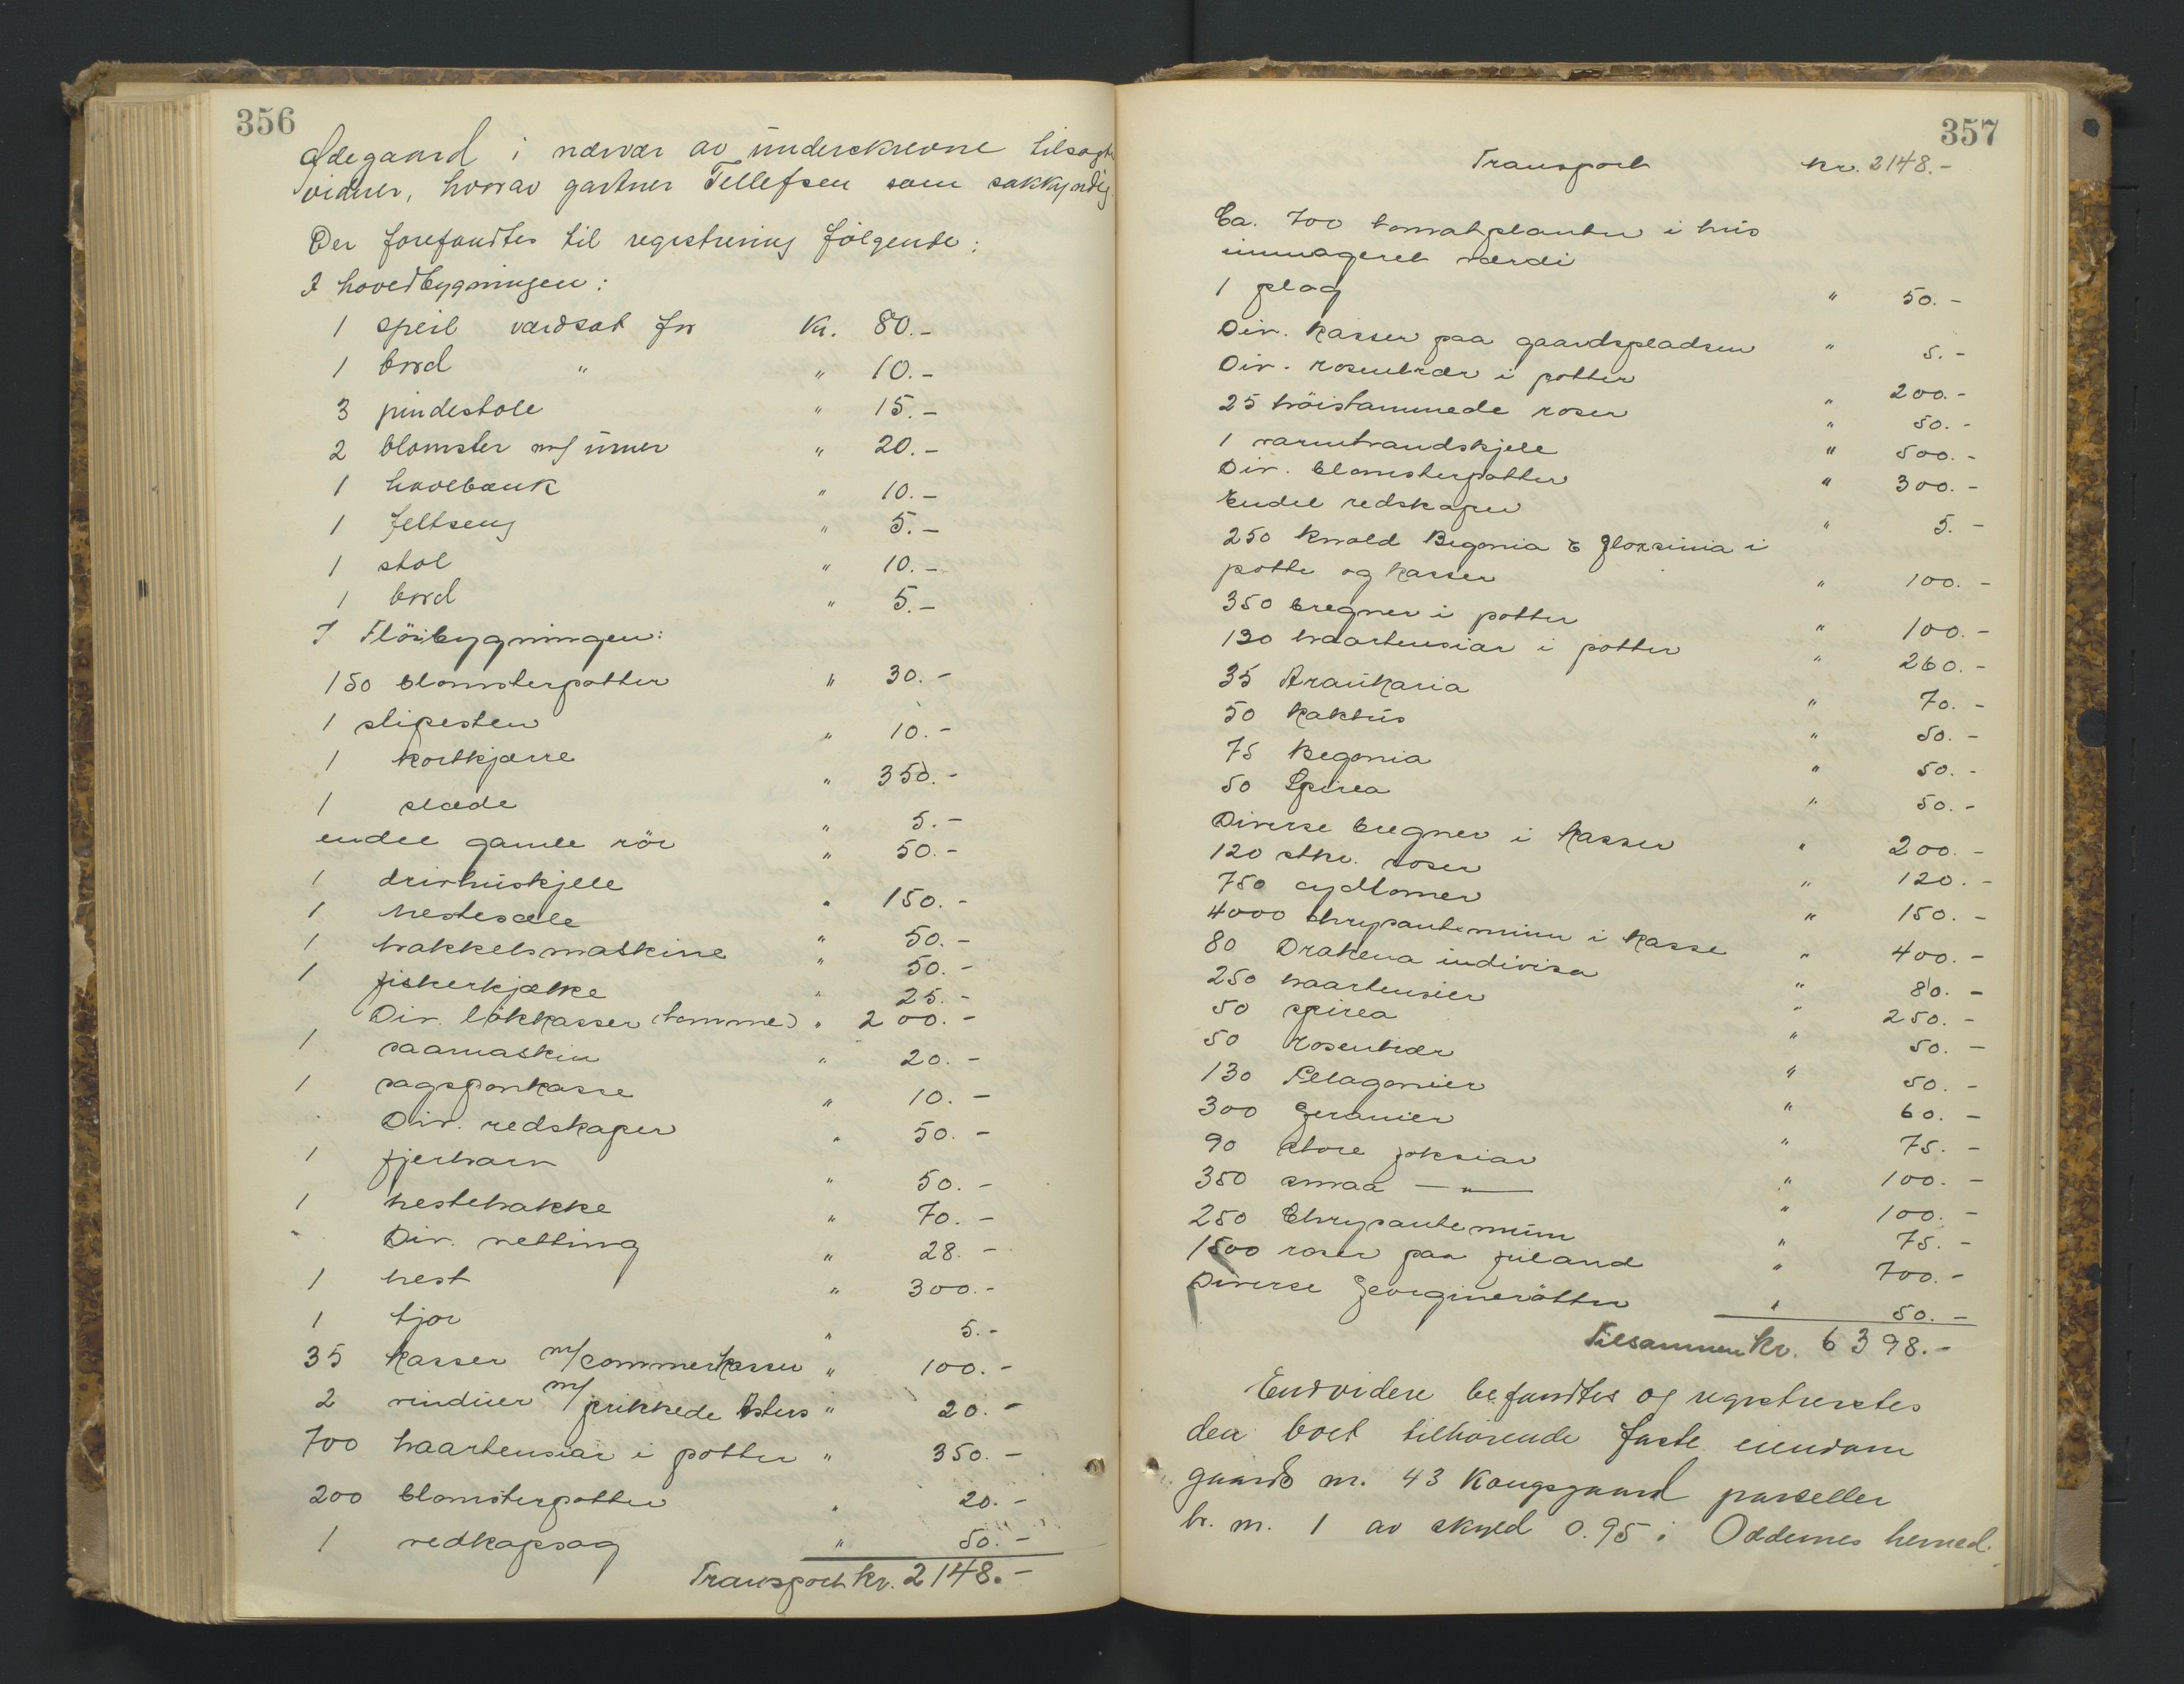 356
Ødegaard i nærvær av underskrevne tilsagte
vidner, hvorav gartner Tellefsen som sakkyndig.
Der forefandtes til registrering følgende:
I hovedbygningen:
1 speil værdsat for Kr. 80.-
1 bord " " 10.-
3 pindestole " 15.-
2 blomster m/ urner " 20.-
1 høvlbænk " 10.-
1 feltseng " 5.-
1 stol " 10.-
1 bord " 5.-
I Fløibygningen:
150 blomsterpotter " 30.-
1 slipesten " 10.-
1 kortkjærre " 350.-
1 slæde " 5.-
endel gamle rör " 50.-
1 drivhuskjele " 150.-
1 hestesæle " 50.-
1 hakkelsmaskine " 50.-
1 fiskerkjælke " 25.-
Div. lökkasser (tomme) " 200.-
1 saamaskin " 20.-
1 sagsponkasse " 10.-
Div. redskaper " 50.-
1 fjerharv " 50.-
1 hestehakke " 70.-
Div. netting " 28.-
1 hest " 300.-
1 tjor " 5.-
35 kasser m/ sommerkasser " 100.-
2 vinduer m/ prikkede Asters " 20.-
700 haartensiar i potter " 350.-
200 blomsterpotter " 20.-
1 vedkapsag " 50.-
Transport kr. 2148.-
357
Transport kr. 2148.-
Ca. 700 tomatplanter i hus
unnageret værdi
1 plog " 50.-
Div. kasser paa gaardspladsen " 5.-
Div. rosentrær i potter " 200.-
25 höistammede roser " 50.-
1 varmtvandskjele " 500.-
Div. blomsterpotter " 300.-
Endel redskaper " 5.-
250 knold Begonia & gloxsinia i
potte og kasser " 100.-
350 bregner i potter " 100.-
130 haartensiar i potter " 260.-
35 Araukaria " 70.-
50 kaktus " 50.-
75 Begonia " 50.-
50 Spirea " 50.-
Diverse bregner i kasser " 200.-
120 stkr. roser " 120.-
750 cydlomer " 150.-
4000 Chrysantemum i kasse " 400.-
80 Drakena indivisa " 80.-
250 haartensier " 250.-
50 spirea " 50.-
50 rosentrær " 50.-
130 Pelagonier " 60.-
300 geranier " 75.-
90 store foksiar " 100.-
350 smaa — " — " 100.-
250 Chrysantemum " 75.-
1500 roser paa friland " 700.-
Diverse Georginerötter " 50.-
Tilsammen Kr. 6398.-
Endvidere befandtes og registrertes
den boet tilhörende faste eiendom
gaards nr. 43 Kongsgaard parseller
br. nr. 1 av skyld 0.95 i Oddernes herred.